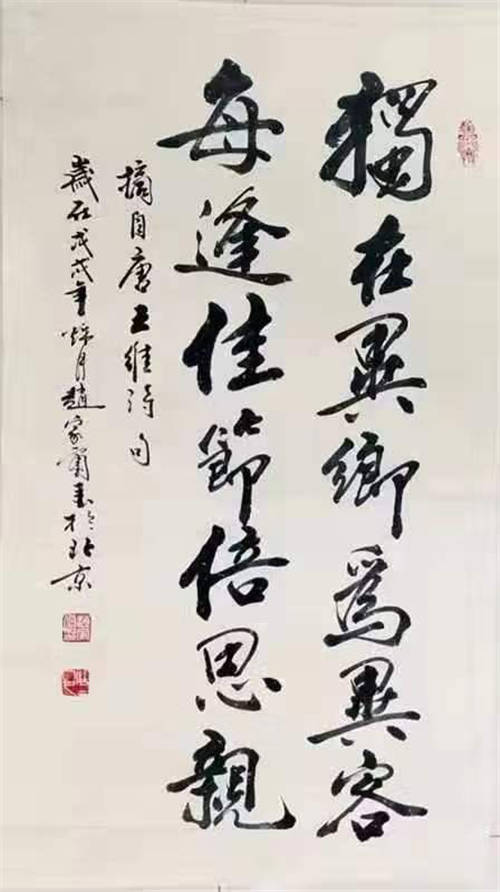 獨在異鄉為異客
每逢佳節倍思親
摘自唐王維詩句
歲在戊戌年 月趙家 書於北京